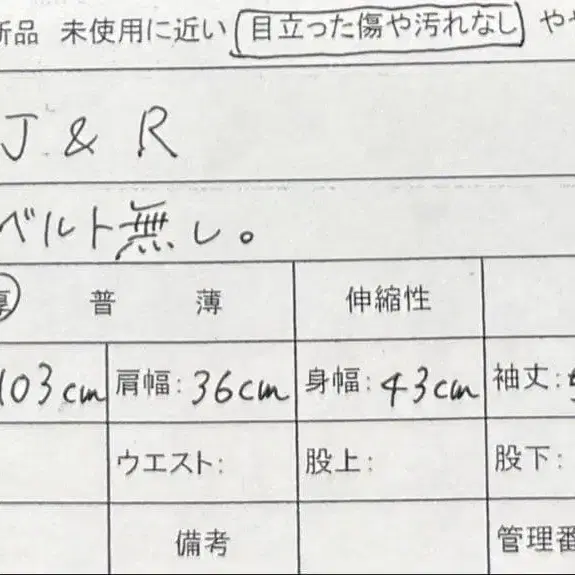 新品 未使用に近い 目立った傷や汚れなし やや
J & R
ベルト無し。
厚 普 薄 伸縮性
103cm 肩幅: 36cm 身幅: 43cm 袖丈:
ウエスト: 股上: 股下:
備考 管理番